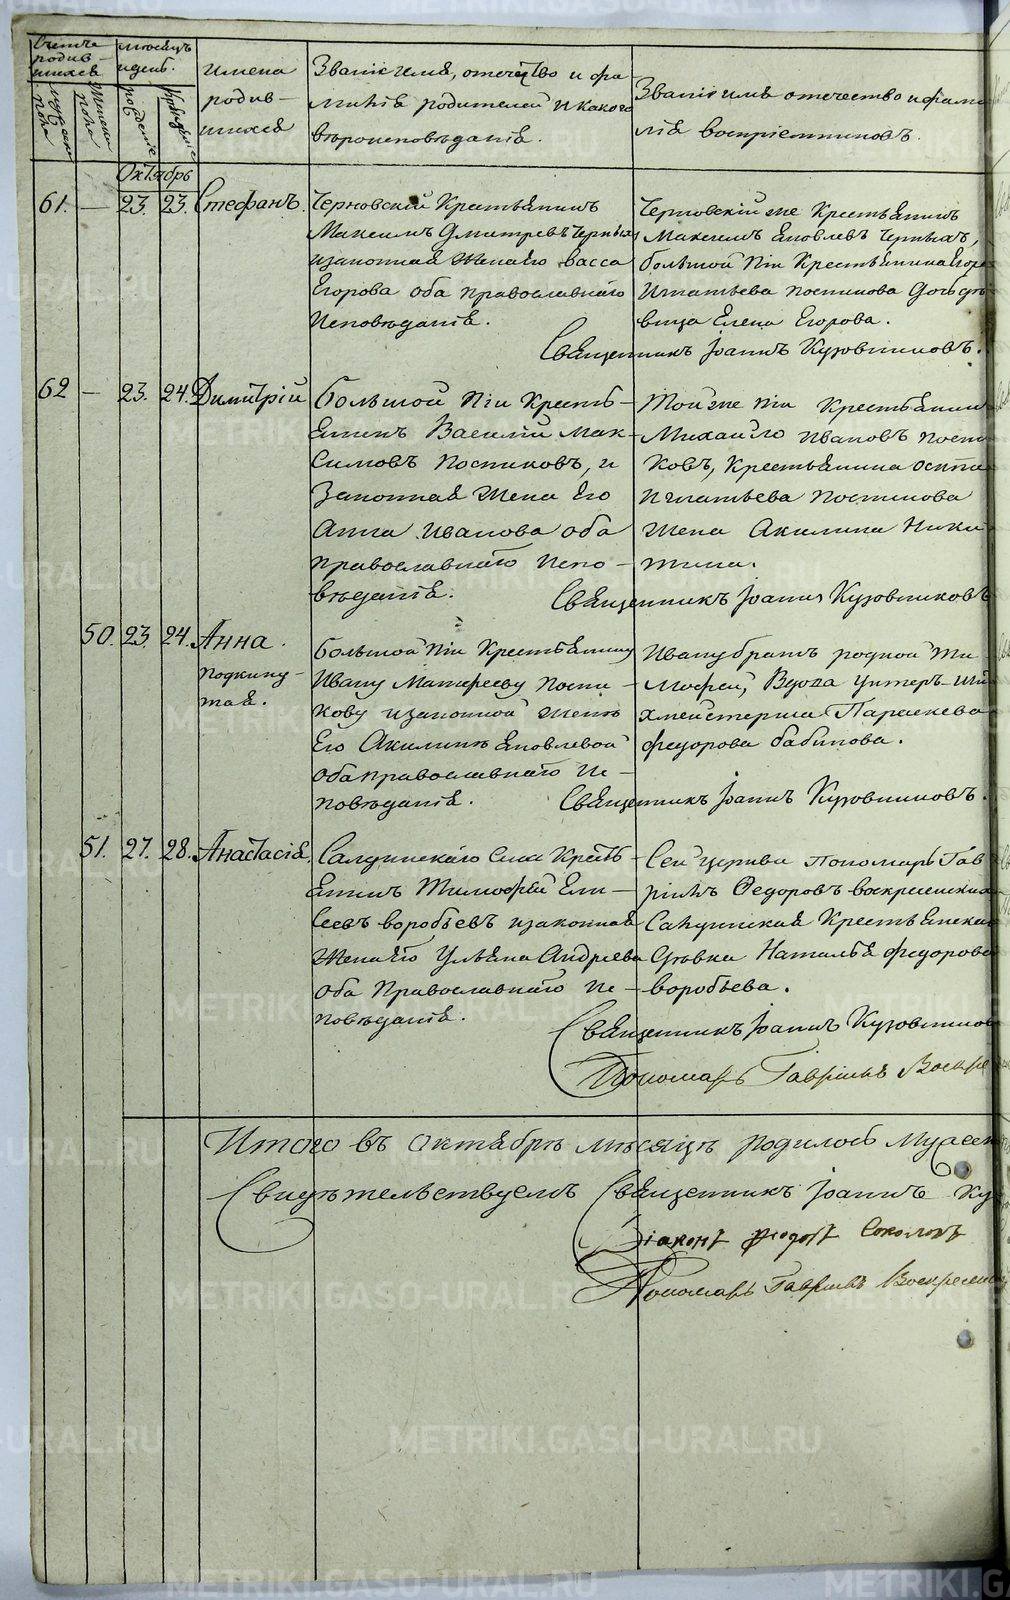 Счетъ родив-шихся
мѣсяцъ и день.
имена родив-шихся
Званiе имя, отечество и фамилiя родителей и какого вѣроисповѣданiя.
Званiе имя отечество и фами
лiя воспрiемниковъ.
мужеска пола
женска пола
рожденiе
крещенiе
Октябрь
61. — 23. 23. Стефанъ.
Черновскiй Крестьянинъ
Максимъ Дмитревъ Черныхъ
и законная жена его Васса
Егорова оба православнаго
исповѣданiя.
Черновскiй же Крестьянинъ
Максимъ Яковлевъ Черныхъ,
большой Крестьянина Егора
Игнатьева Постникова дочь дѣ
вица Елена Егорова.
Священникъ Iоаннъ Кузовниковъ.
62 — 23. 24. Димитрiй
большой Кресть-
янинъ Василiй Мак-
симовъ Постниковъ, и
законная жена его
Анна Иванова оба
православнаго испо-
вѣданiя.
Той же Крестьянин
Михайло Ивановъ Постни
ковъ, Крестьянина
Игнатьева Постникова
жена Акилина Ники
тина.
Священникъ Iоаннъ Кузовниковъ
50. 23. 24. Анна.
подкину-
тая.
большой Крестьянину
Ивану Матфееву Постни-
кову и законной женѣ
его Акилинѣ Яковлевой
оба православнаго ис-
повѣданiя.
Ивану братъ родной Ти
мофей, Вдова унтеръ-ши
хмейстерша Параскева
Федорова Бабинова.
Священникъ Iоаннъ Кузовниковъ.
51. 27. 28. Анастасiя.
Салдинскаго села Кресть-
янинъ Тимофей Ели-
сеевъ Воробьевъ и законная
жена его Ульяна Андреева
оба Православнаго ис-
повѣданiя.
Сей церкви Пономарь Гав
рiилъ Федоровъ Воскресенскiй
Салдинская Крестьянская
дѣвка Наталья Федорова
Воробьева.
Священникъ Iоаннъ Кузовников
Пономарь Гаврiилъ Воскре
Итого въ октябрѣ мѣсяцѣ родилось мужеск
Свидѣтельствуемъ Священникъ Iоаннъ Ку
Дiаконъ Соколовъ
Пономарь Гаврiилъ Воскресенск
METRIKI.GASO-URAL.RU